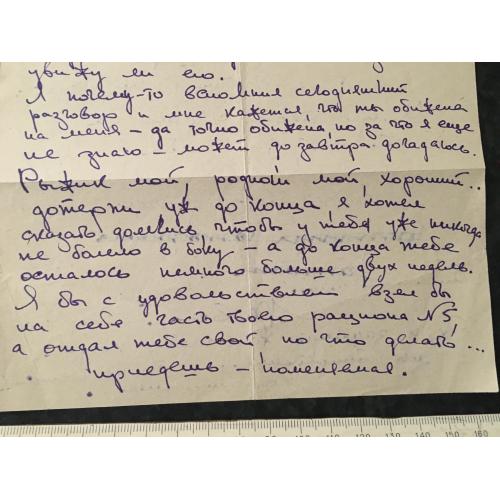 увижу ли его.
Я почему-то вспомнил сегодняшний
разговор и мне кажется, что ты обижена
на меня – да точно обижена, но за что я еще
не знаю – может до завтра догадаюсь.
Рыжик мой, родной мой, хороший..
дотерпи уж до конца, я хотел
сказать долечись чтобы у тебя уже никогда
не болело в боку – а до конца тебе
осталось немного больше двух недель.
Я бы с удовольствием взял бы
на себя часть твоего рациона N5,
а отдал тебе свой но что делать...
приедешь – поменяемся.
90 100 110 120 130 140 150 160